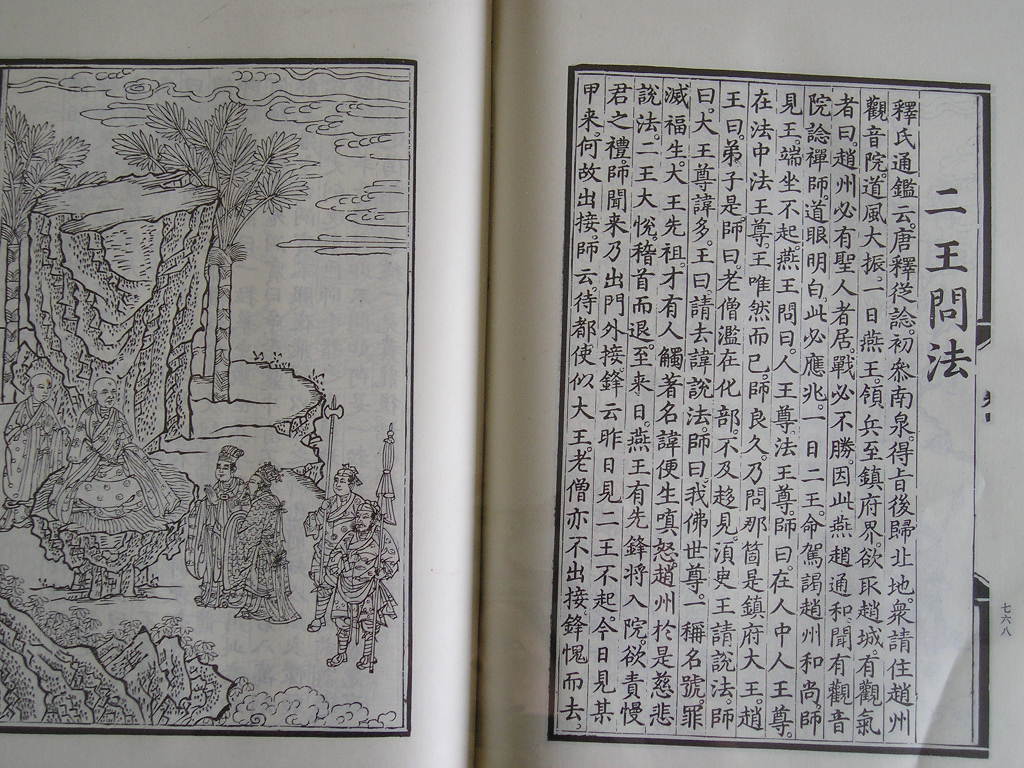 二王問法
釋氏通鑑云。唐釋從諗。初叅南泉。得旨後歸北地。衆請住趙州
觀音院。道風大振。一日燕王。領兵至鎮府界欲取趙城。有觀氣
者曰。趙州必有聖人者居。戰必不勝。因此燕趙通和。聞有觀音
院諗禪師。道眼明白。此必應兆。一日二王。命駕謁趙州和尚。師
見王。端坐不起。燕王問曰。人王尊。法王尊。師曰。在人中人王尊。
在法中法王尊。王唯然而已。師良久。乃問那箇是鎮府大王。趙
王曰。弟子是。師曰老僧濫在化部。不及趍見。湏臾王請說法。師
曰大王尊諱多。王曰。請去諱說法。師曰。我佛世尊。一稱名號。罪
滅福生。大王先祖才有人觸著名諱便生嗔怒。趙州於是慈悲
說法。二王大悅。稽首而退。至来日。燕王有先鋒將入院。欲責慢
君之禮。師聞来乃出門外接。鋒云昨日見二王不起。今日見某
甲来。何故出接。師云。待都使似大王。老僧亦不出接。鋒愧而去。
七六八